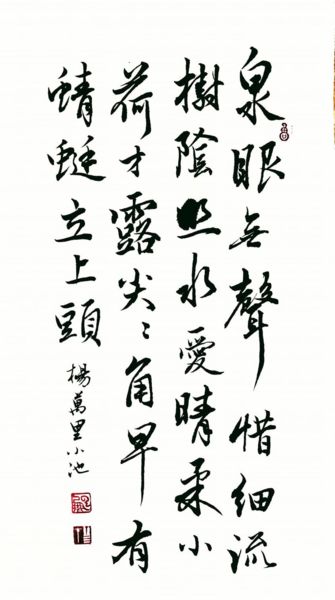 泉眼無聲惜細流
樹陰照水愛晴柔小
荷才露尖〻角早有
蜻蜓立上頭
楊萬里小池